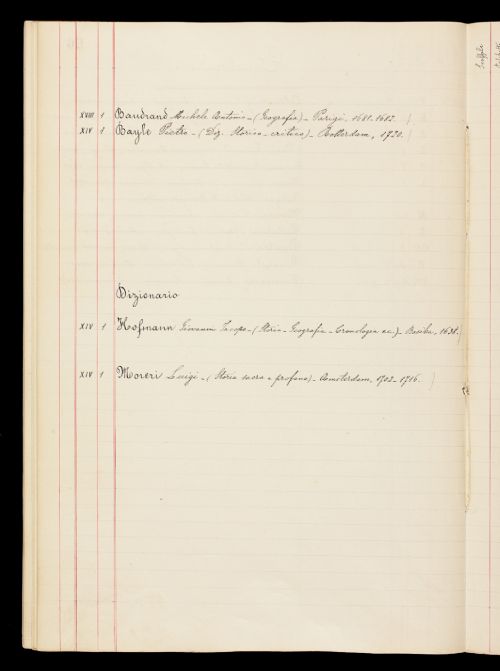 XVIII 1 Baudrand Michele Antonio - (Geografia) - Parigi, 1681-1682.
XIV 1 Bayle Pietro - (Diz. Storico-critico) - Rotterdam, 1720.
Dizionario
XIV 1 Hofmann Giovanni Jacopo - (Storia - Geografia - Cronologia ec.) - Basilea, 1698.
XIV 1 Moreri Luigi - (Storia sacra e profana) - Amsterdam, 1702-1716.